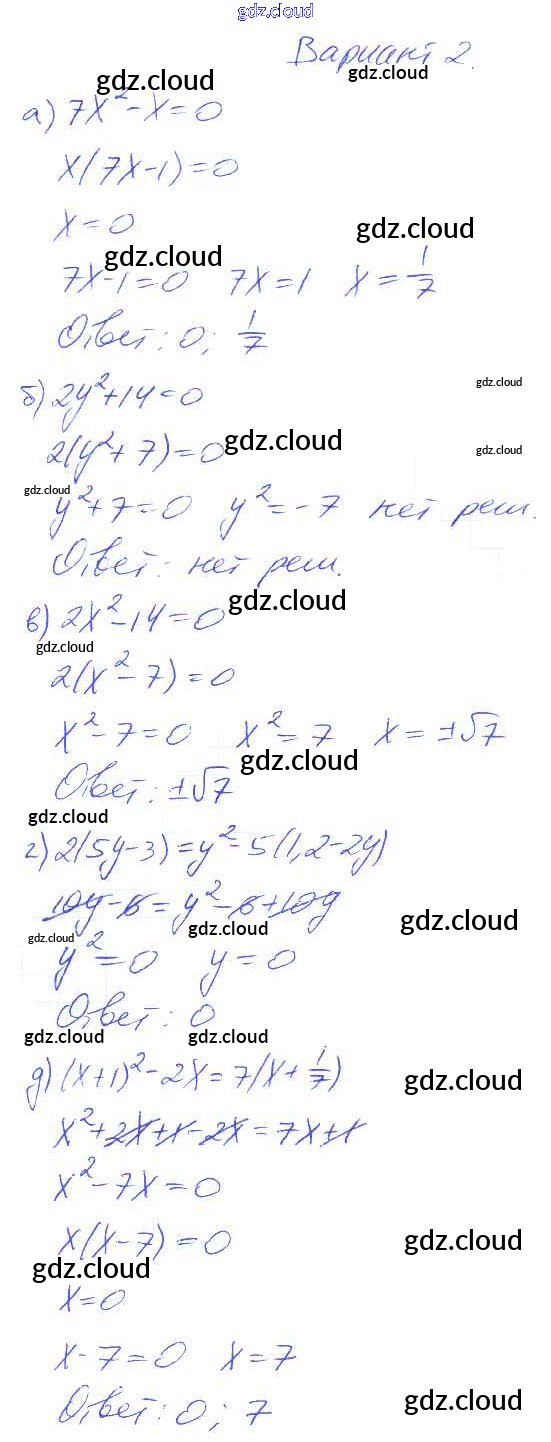 gdz.cloud
Вариант 2.
gdz.cloud gdz.cloud
а) 7x² - x = 0
x(7x-1) = 0
x = 0 gdz.cloud
gdz.cloud
7x-1=0 7x=1 x = 1/7
Ответ: 0; 1/7
б) 2y²+14=0 gdz.cloud
2(y²+7)=0 gdz.cloud gdz.cloud
gdz.cloud
y²+7=0 y²=-7 нет реш.
Ответ: нет реш.
в) 2x²-14=0 gdz.cloud
gdz.cloud
2(x²-7)=0
x²-7=0 x²=7 x=±√7
gdz.cloud
Ответ: ±√7
gdz.cloud
г) 2(5y-3)=y²-5(1,2-2y)
10y-6=y²-6+10y
gdz.cloud gdz.cloud gdz.cloud
y²=0 y=0
Ответ: 0
gdz.cloud gdz.cloud
д) (x+1)²-2x=7(x+1/7) gdz.cloud
x²+2x+1-2x=7x+1
x²-7x=0
x(x-7)=0 gdz.cloud
gdz.cloud
x=0
x-7=0 x=7
Ответ: 0; 7 gdz.cloud